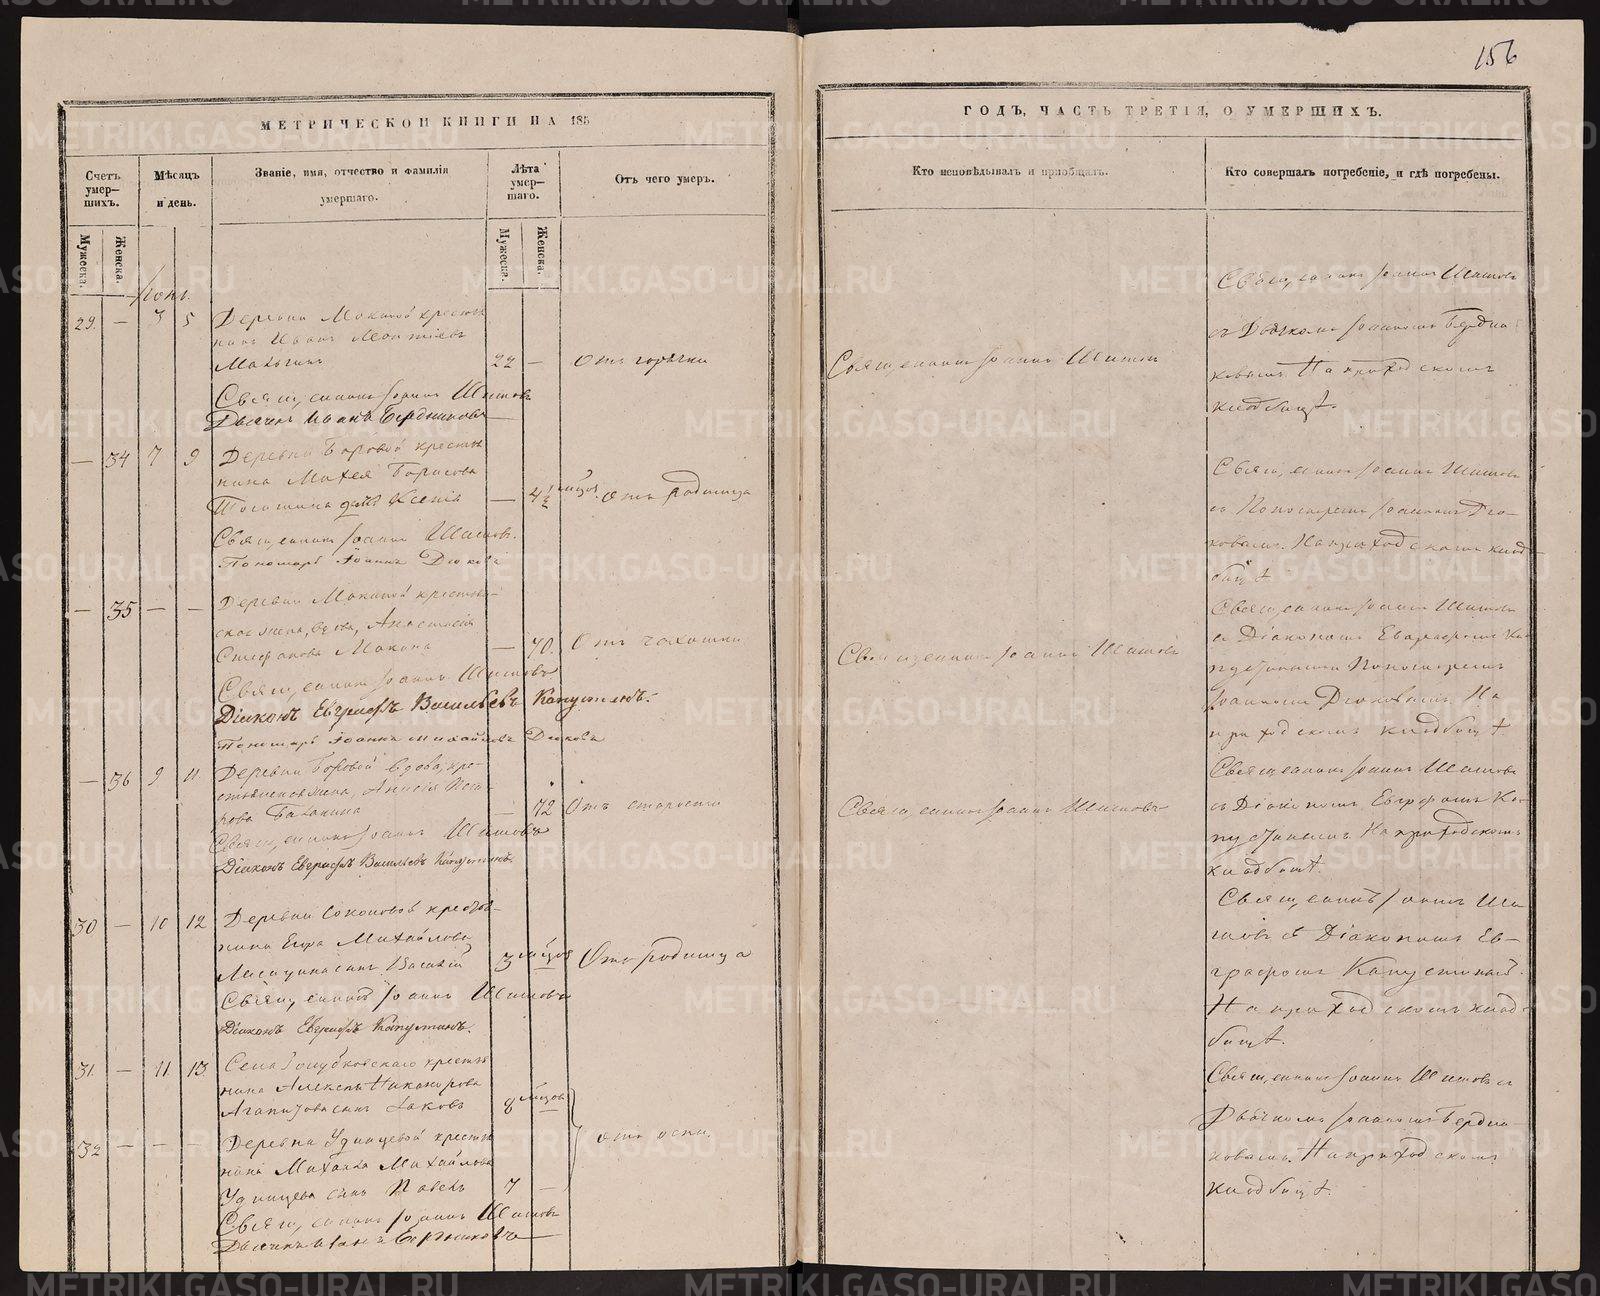 156
МЕТРИЧЕСКОЙ КНИГИ НА 185
Счетъ умер-шихъ.
Мужеска.
Женска.
Мѣсяцъ и день.
Званіе, имя, отчество и фамилія умершаго.
Лѣта умер-шаго.
Мужеска.
Женска.
Отъ чего умеръ.
29. — 3 5
Деревни крестья
нинъ Иванъ Леонтіевъ
22 — Отъ горячки
Священникъ Іоаннъ Шишовъ
Дьячекъ Иванъ Бердниковъ
— 34 7 9
Деревни Боровой крестья
нина Михея Борисова
дочь Ксенія — 4½ мѣсяц. Отъ родимца
Священникъ Іоаннъ Шишовъ.
Пономарь Іоаннъ Дюковъ
— 35 — —
Деревни крестьян-
ская жена, вдова, Анастасія
Стефанова — 70. Отъ чахотки
Священникъ Іоаннъ Шишовъ
Діаконъ Евграфъ Васильевъ Капустинъ.
Пономарь Іоаннъ Михайловъ Дюковъ
— 36 9 11
Деревни Боровой вдова, кре-
стьянская жена,
— 72 Отъ старости
Священникъ Іоаннъ Шишовъ
Діаконъ Евграфъ Васильевъ Капустинъ.
30 — 10 12
Деревни крестья-
нина Егора Михайлова
сынъ Василій 3 мѣсяц. Отъ родимца
Священникъ Іоаннъ Шишовъ
Діаконъ Евграфъ Капустинъ.
31. — 11. 13.
Села Голубковскаго крестья
нина Алексѣя Никанорова
Агапитова сынъ Іаковъ 8 мѣсяц.
32 — — —
Деревни Удинцевой крестья
нина Михаила Михайлова
Удинцева сынъ Павелъ 7 —
отъ оспы.
Священникъ Іоаннъ Шишовъ
Дьячекъ Иванъ Бердниковъ
ГОДЪ, ЧАСТЬ ТРЕТІЯ, О УМЕРШИХЪ.
Кто исповѣдывалъ и пріобщалъ.
Кто совершалъ погребеніе, и гдѣ погребены.
Священникъ Іоаннъ Шишовъ
Священникъ Іоаннъ Шишовъ
съ Дьячкомъ Іоанномъ Бердни
ковымъ На приходскомъ
кладбищѣ.
Священникъ Іоаннъ Шишовъ
съ Пономаремъ Іоанномъ Дю-
ковымъ. На приходскомъ клад-
бищѣ
Священникъ Іоаннъ Шишовъ
Священникъ Іоаннъ Шишовъ
съ Діакономъ Евграфомъ Ка
пустинымъ Пономаремъ
Іоанномъ Дюковымъ На
приходскомъ кладбищѣ
Священникъ Іоаннъ Шишовъ
Священникъ Іоаннъ Шишовъ
съ Діакономъ Евграфомъ Ка-
пустинымъ На приходскомъ
кладбищѣ.
Священникъ Іоаннъ Ши
шовъ съ Діакономъ Ев-
графомъ Капустинымъ.
На приходскомъ клад-
бищѣ.
Священникъ Іоаннъ Шишовъ съ
Дьячкомъ Іоанномъ Бердни-
ковымъ. На приходскомъ
кладбищѣ.
METRIKI.GASO-URAL.RU